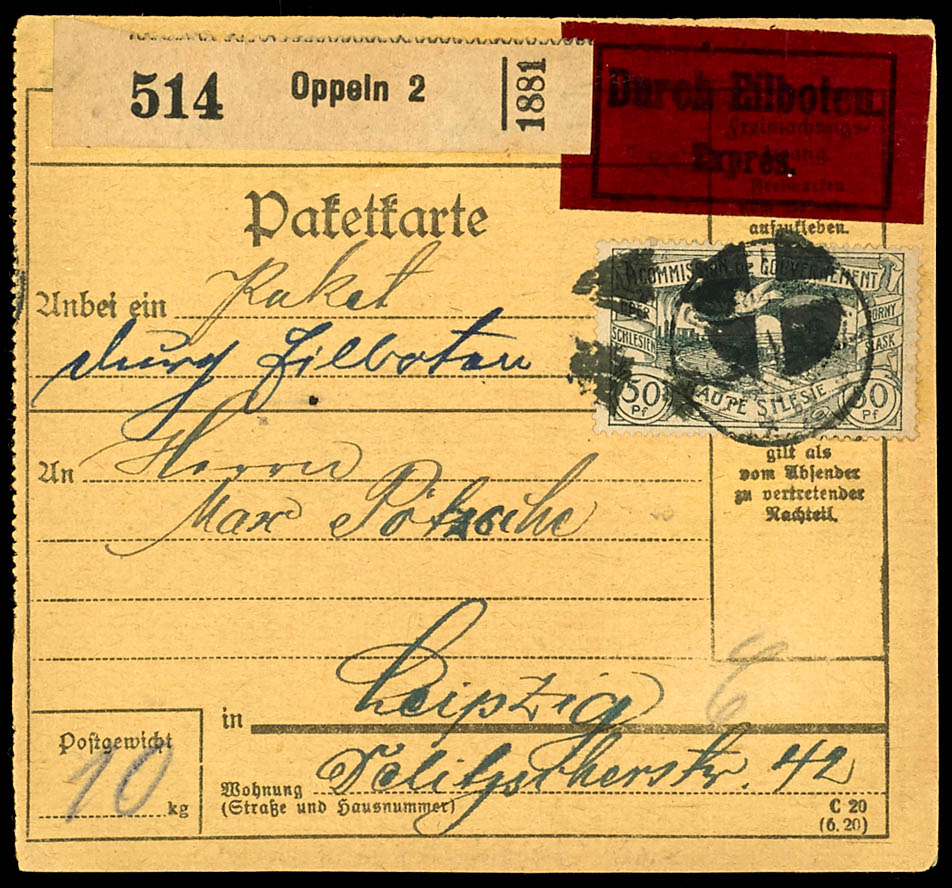 514 Oppeln 2 1881
Durch Eilboten.
Exprès.
Freimachungs-
zwang.
aufzukleben.
Paketkarte
COMMISSION DE GOUVERNEMENT
OBER
SCHLESIEN
GORNY
ŚLĄSK
50 Pf
HAUTE SILÉSIE
50 Pf
Anbei ein Paket
durch Eilboten
gilt als
vom Absender
zu vertretender
Nachteil.
An Herrn
Max Pötzsche
in Leipzig
6
Postgewicht
10 kg
Wohnung Delitzscherstr. 42
(Straße und Hausnummer)
C 20
(6. 20)